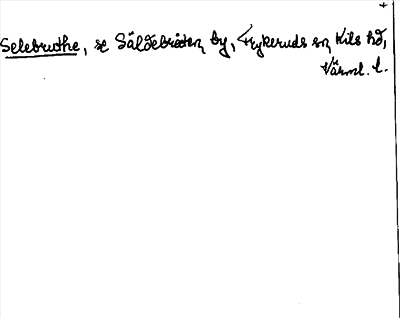 +
Selebruthe, se Säldebråten, by, Frykeruds sn, Kils hd,
Värml. l.